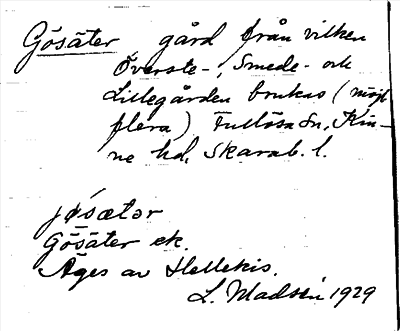 Gösäter gård från vilken
Överste-, Smede- och
Lillegården brukas (möjl
flera) Fullösa Sn, Kin-
ne hd, Skarab. l.
jø̀sætər
Gösäter ek.
Äges av Hellekis.
L. Madsén 1929